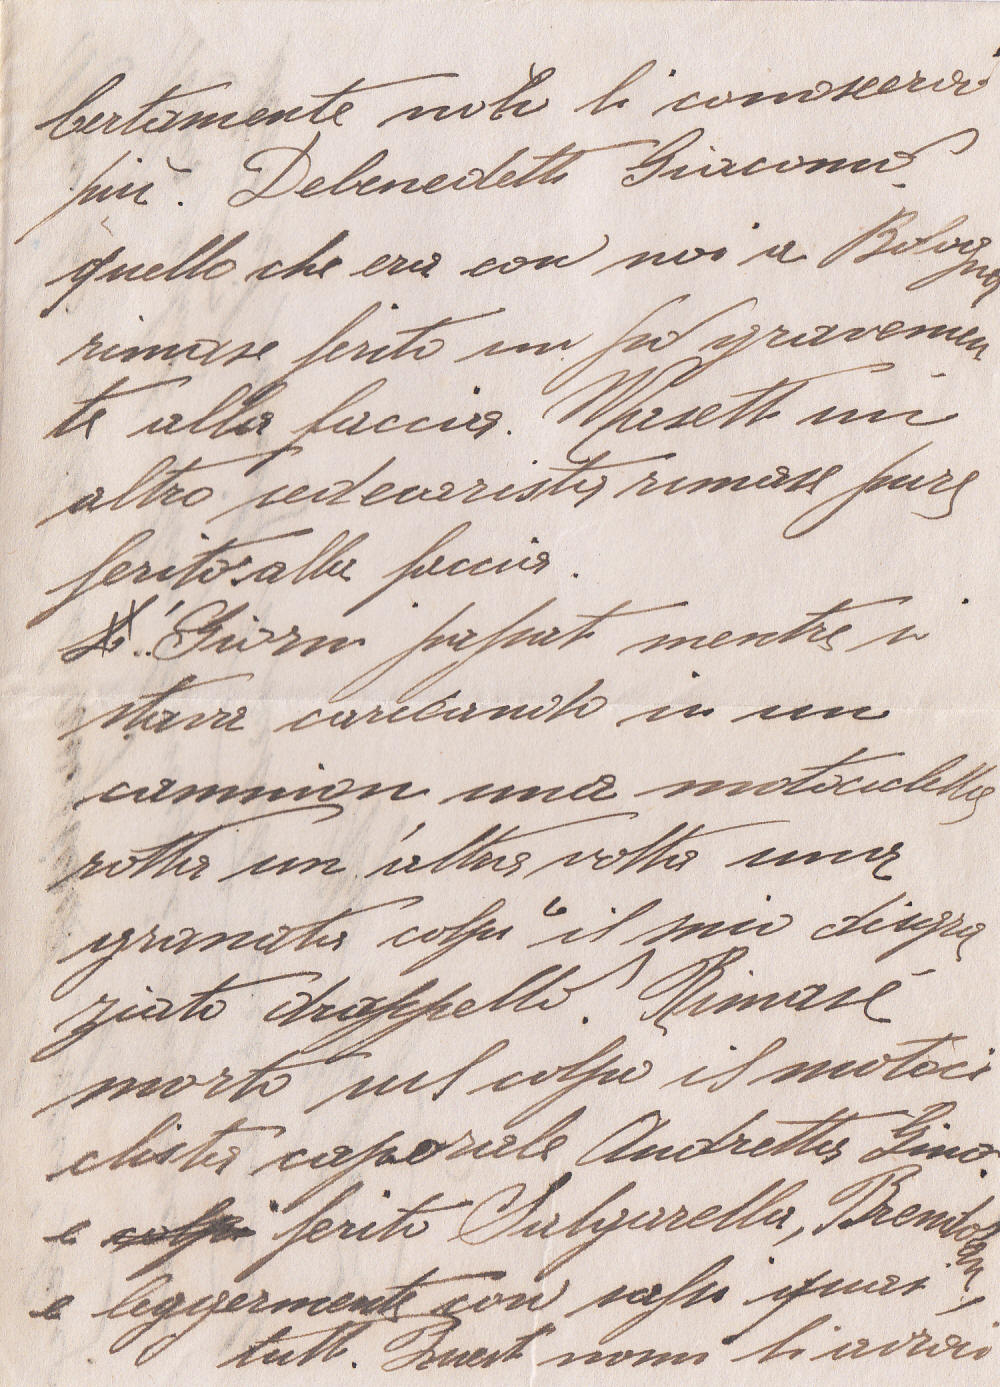 Certamente non li conoscerai
più. Debenedetti Giacomo
quello che era con noi a Bologna
rimase ferito un pò gravemen
te alla faccia. Masetti un
altro rimase pure
ferito alla faccia.
Giorni passati mentre si
stava caricando in un
cammion una motocicletta
rotta un'altra volta una
granata colpì il mio disgra
ziato drappello. Rimase
morto sul colpo il motoci
clista caporale Andretta Gino
e colpi ferito Salgarella, Brendolan,
e leggermente con sassi quasi
tutti. Questi nomi li avrai